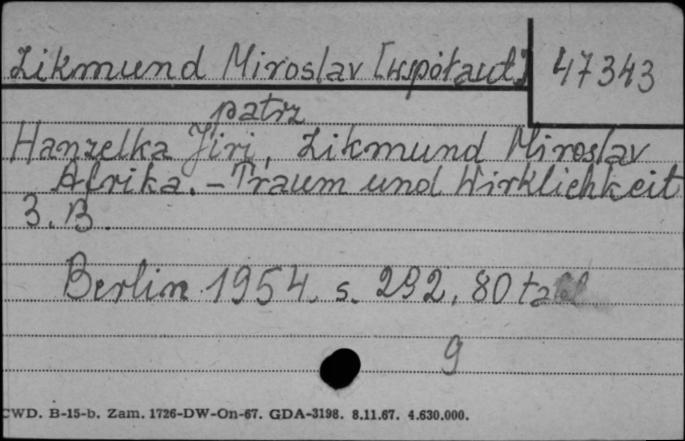 Zikmund Miroslav [współaut] 47343
patrz
Hanzelka Jiri, Zikmund Miroslav
Afrika. – Traum und Wirklichkeit
3. B.
Berlin 1954. s. 292, 80 tabl
9
CWD. B-15-b. Zam. 1726-DW-On-67. GDA-3198. 8.11.67. 4.630.000.